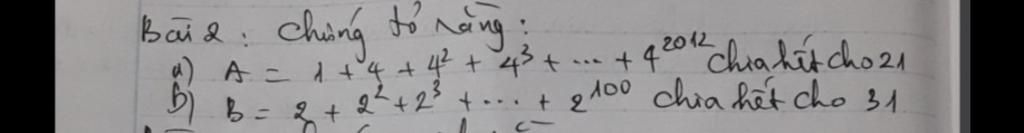 Bài 2: Chứng tỏ rằng:
a) A = 1 + 4 + 4² + 4³ + ... + 4²⁰¹² chia hết cho 21
b) B = 2 + 2² + 2³ + ... + 2¹⁰⁰ chia hết cho 31